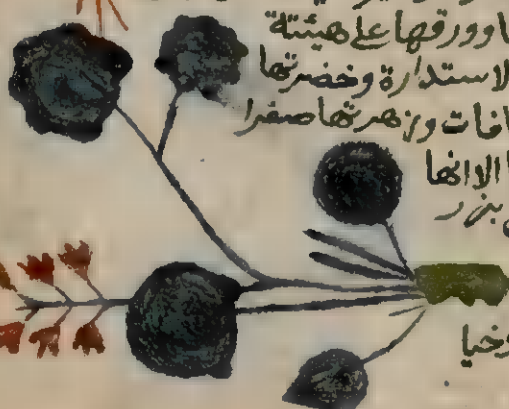 ا وورقها على هيئة
لاستدارة وخضرتها
افات وزهرتها صفرا
ا الا انها
بزر
وخيا